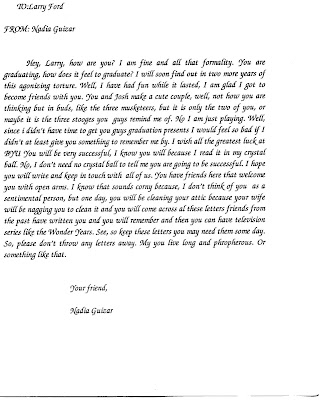 TO:Larry Ford
FROM: Nadia Guizar
Hey, Larry, how are you? I am fine and all that formality. You are
graduating, how does it feel to graduate? I will soon find out in two more years of
this agonizing torture. Well, i have had fun while it lasted, I am glad I got to
become friends with you. You and Josh make a cute couple, well, not how you are
thinking but in buds, like the three musketeers, but it is only the two of you, or
maybe it is the three stooges you guys remind me of. No I am just playing. Well,
since i didn't have time to get you guys graduation presents I would feel so bad if I
didn't at least give you something to remember me by. I wish all the greatest luck at
BYU! You will be very successful, I know you will because I read it in my crystal
ball. No, I don't need no crystal ball to tell me you are going to be successful. I hope
you will write and keep in touch with all of us. You have friends here that welcome
you with open arms. I know that sounds corny because, I don't think of you as a
sentimental person, but one day, you will be cleaning your attic because your wife
will be nagging you to clean it and you will come across all these letters friends from
the past have written you and you will remember and then you can have television
series like the Wonder Years. See, so keep these letters you may need them some day.
So, please don't throw any letters away. My you live long and phropherous. Or
something like that.
Your friend,
Nadia Guizar